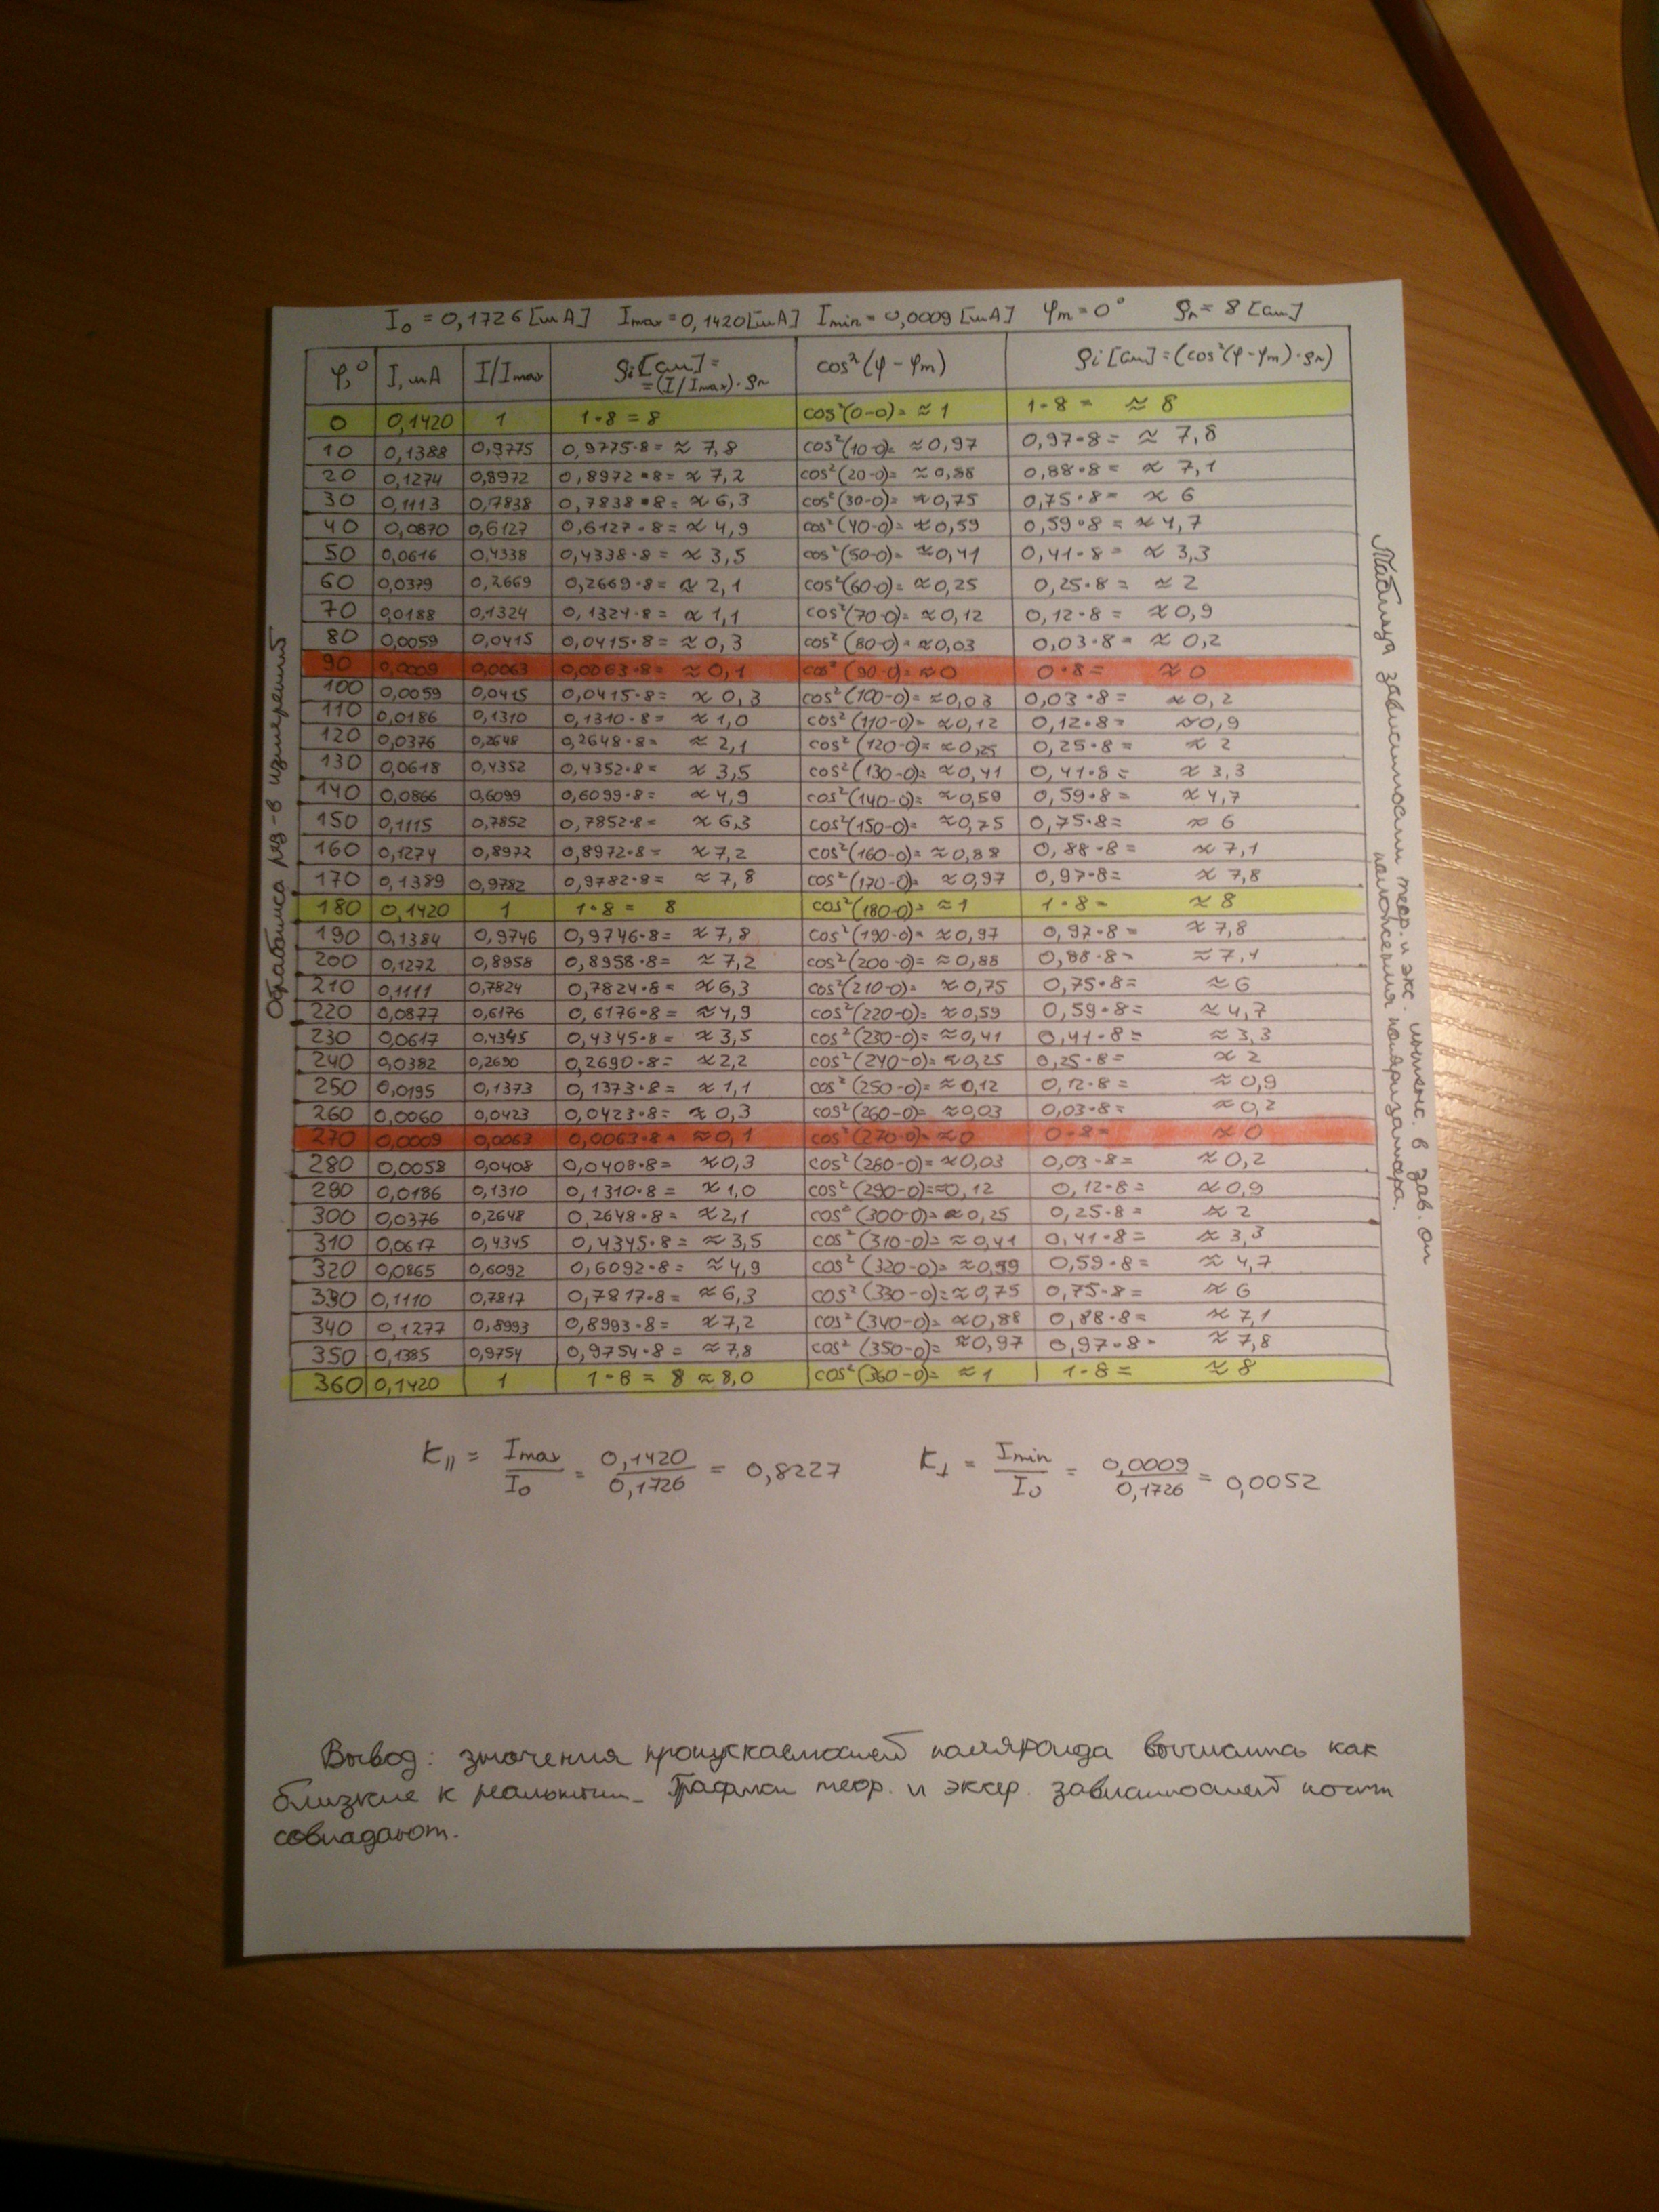 I₀ = 0,1726 [mA] Imax = 0,1420 [mA] Imin = 0,0009 [mA] φm = 0° ρm = 8 [см]
φ,° I, mA I/Imax ρi [см] = =(I/Imax)·ρm cos²(φ - φm) ρi [см] = (cos²(φ-φm)·ρm)
0 0,1420 1 1·8 = 8 cos²(0-0)= ≈ 1 1·8 = ≈ 8
10 0,1388 0,9775 0,9775·8= ≈ 7,8 cos²(10-0)= ≈0,97 0,97·8= ≈ 7,8
20 0,1274 0,8972 0,8972·8= ≈ 7,2 cos²(20-0)= ≈0,88 0,88·8= ≈ 7,1
30 0,1113 0,7838 0,7838·8= ≈ 6,3 cos²(30-0)= ≈0,75 0,75·8= ≈ 6
40 0,0870 0,6127 0,6127·8= ≈ 4,9 cos²(40-0)= ≈0,59 0,59·8= ≈ 4,7
50 0,0616 0,4338 0,4338·8= ≈ 3,5 cos²(50-0)= ≈0,41 0,41·8= ≈ 3,3
60 0,0379 0,2669 0,2669·8= ≈ 2,1 cos²(60-0)= ≈0,25 0,25·8= ≈ 2
70 0,0188 0,1324 0,1324·8= ≈ 1,1 cos²(70-0)= ≈0,12 0,12·8= ≈0,9
80 0,0059 0,0415 0,0415·8= ≈ 0,3 cos²(80-0)= ≈0,03 0,03·8= ≈ 0,2
90 0,0009 0,0063 0,0063·8= ≈ 0,1 cos²(90-0)= ≈0 0·8= ≈ 0
100 0,0059 0,0415 0,0415·8= ≈ 0,3 cos²(100-0)= ≈0,03 0,03·8= ≈ 0,2
110 0,0186 0,1310 0,1310·8= ≈ 1,0 cos²(110-0)= ≈0,12 0,12·8= ≈0,9
120 0,0376 0,2648 0,2648·8= ≈ 2,1 cos²(120-0)= ≈0,25 0,25·8= ≈ 2
130 0,0618 0,4352 0,4352·8= ≈ 3,5 cos²(130-0)= ≈0,41 0,41·8= ≈ 3,3
140 0,0866 0,6099 0,6099·8= ≈4,9 cos²(140-0)= ≈0,59 0,59·8= ≈4,7
150 0,1115 0,7852 0,7852·8= ≈ 6,3 cos²(150-0)= ≈0,75 0,75·8= ≈ 6
160 0,1274 0,8972 0,8972·8= ≈7,2 cos²(160-0)= ≈0,88 0,88·8= ≈ 7,1
170 0,1389 0,9782 0,9782·8= ≈ 7,8 cos²(170-0)= ≈0,97 0,97·8= ≈ 7,8
180 0,1420 1 1·8 = 8 cos²(180-0)= ≈1 1·8= ≈ 8
190 0,1384 0,9746 0,9746·8= ≈ 7,8 cos²(190-0)= ≈0,97 0,97·8= ≈ 7,8
200 0,1272 0,8958 0,8958·8= ≈ 7,2 cos²(200-0)= ≈0,88 0,88·8= ≈ 7,1
210 0,1111 0,7824 0,7824·8= ≈6,3 cos²(210-0)= ≈0,75 0,75·8= ≈6
220 0,0877 0,6176 0,6176·8= ≈4,9 cos²(220-0)= ≈0,59 0,59·8= ≈4,7
230 0,0617 0,4345 0,4345·8= ≈ 3,5 cos²(230-0)= ≈0,41 0,41·8= ≈ 3,3
240 0,0382 0,2690 0,2690·8= ≈2,2 cos²(240-0)= ≈0,25 0,25·8= ≈ 2
250 0,0195 0,1373 0,1373·8= ≈ 1,1 cos²(250-0)= ≈0,12 0,12·8= ≈0,9
260 0,0060 0,0423 0,0423·8= ≈ 0,3 cos²(260-0)= ≈0,03 0,03·8= ≈0,2
270 0,0009 0,0063 0,0063·8= ≈0,1 cos²(270-0)= ≈0 0·8= ≈0
280 0,0058 0,0408 0,0408·8= ≈0,3 cos²(280-0)= ≈0,03 0,03·8= ≈0,2
290 0,0186 0,1310 0,1310·8= ≈1,0 cos²(290-0)= ≈0,12 0,12·8= ≈0,9
300 0,0376 0,2648 0,2648·8= ≈2,1 cos²(300-0)= ≈0,25 0,25·8= ≈2
310 0,0617 0,4345 0,4345·8= ≈3,5 cos²(310-0)= ≈0,41 0,41·8= ≈3,3
320 0,0865 0,6092 0,6092·8= ≈4,9 cos²(320-0)= ≈0,59 0,59·8= ≈ 4,7
330 0,1110 0,7817 0,7817·8= ≈6,3 cos²(330-0)= ≈0,75 0,75·8= ≈6
340 0,1277 0,8993 0,8993·8= ≈7,2 cos²(340-0)= ≈0,88 0,88·8= ≈7,1
350 0,1385 0,9754 0,9754·8= ≈7,8 cos²(350-0)= ≈0,97 0,97·8= ≈7,8
360 0,1420 1 1·8 = 8 ≈ 8,0 cos²(360-0)= ≈1 1·8= ≈8
Обработка рез-в измерений
Таблица зависимости теор. и экс. интенс. в зав. от
положения поляризатора.
K∥ = Imax/I₀ = 0,1420/0,1726 = 0,8227 K⊥ = Imin/I₀ = 0,0009/0,1726 = 0,0052
Вывод: значения поляроида как
близкие к Графики теор. и экспр. зависимостей почти
совпадают.